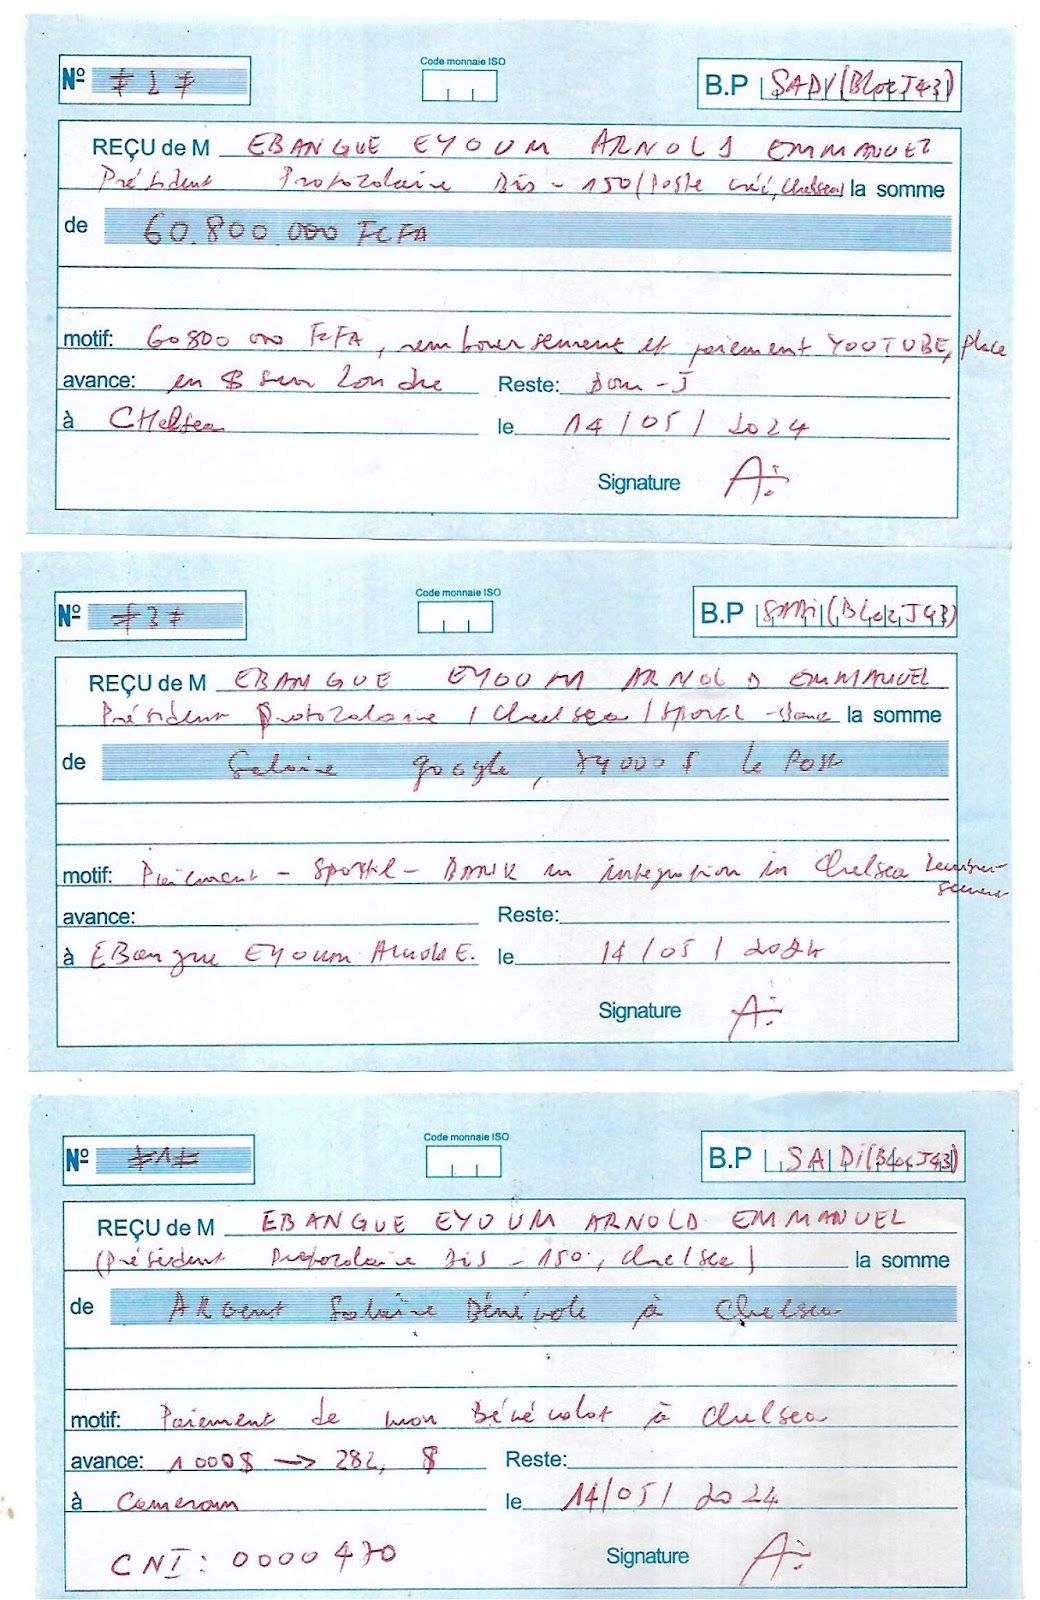 Nº # 2 # Code monnaie ISO B.P SADI (Bloc J43)
REÇU de M EBANGUE EYOUM ARNOLD EMMANUEL
Président Protozolaire Bis - 150 (Poste créé, Chelsea) la somme
de 60.800.000 FCFA
motif: 60 800 000 FCFA, remboursement et paiement YOUTUBE, place
avance: en $ sur Londre Reste: Dom - J
à CHelsea le 14 / 05 / 2024
Signature A
Nº # 3 # Code monnaie ISO B.P SADi (Bloc J43)
REÇU de M EBANGUE EYOUM ARNOLD EMMANUEL
Président Protozolaire / Chelsea / la somme
de Salaire google, 74000 $ le Post
motif: Paiement - BANK in integration in Chelsea
avance: Reste:
à EBangue EYoum Arnold E. le 14 / 05 / 2024
Signature A
Nº # 1 # Code monnaie ISO B.P SADi (Bloc J43)
REÇU de M EBANGUE EYOUM ARNOLD EMMANUEL
(Président Protozolaire Bis - 150, Chelsea) la somme
de ARgent Salaire Bénévole à Chelsea
motif: Paiement de mon Bénévolat à Chelsea
avance: 1 000$ → 282, $ Reste:
à Cameroun le 14 / 05 / 2024
CNI : 0000470 Signature A